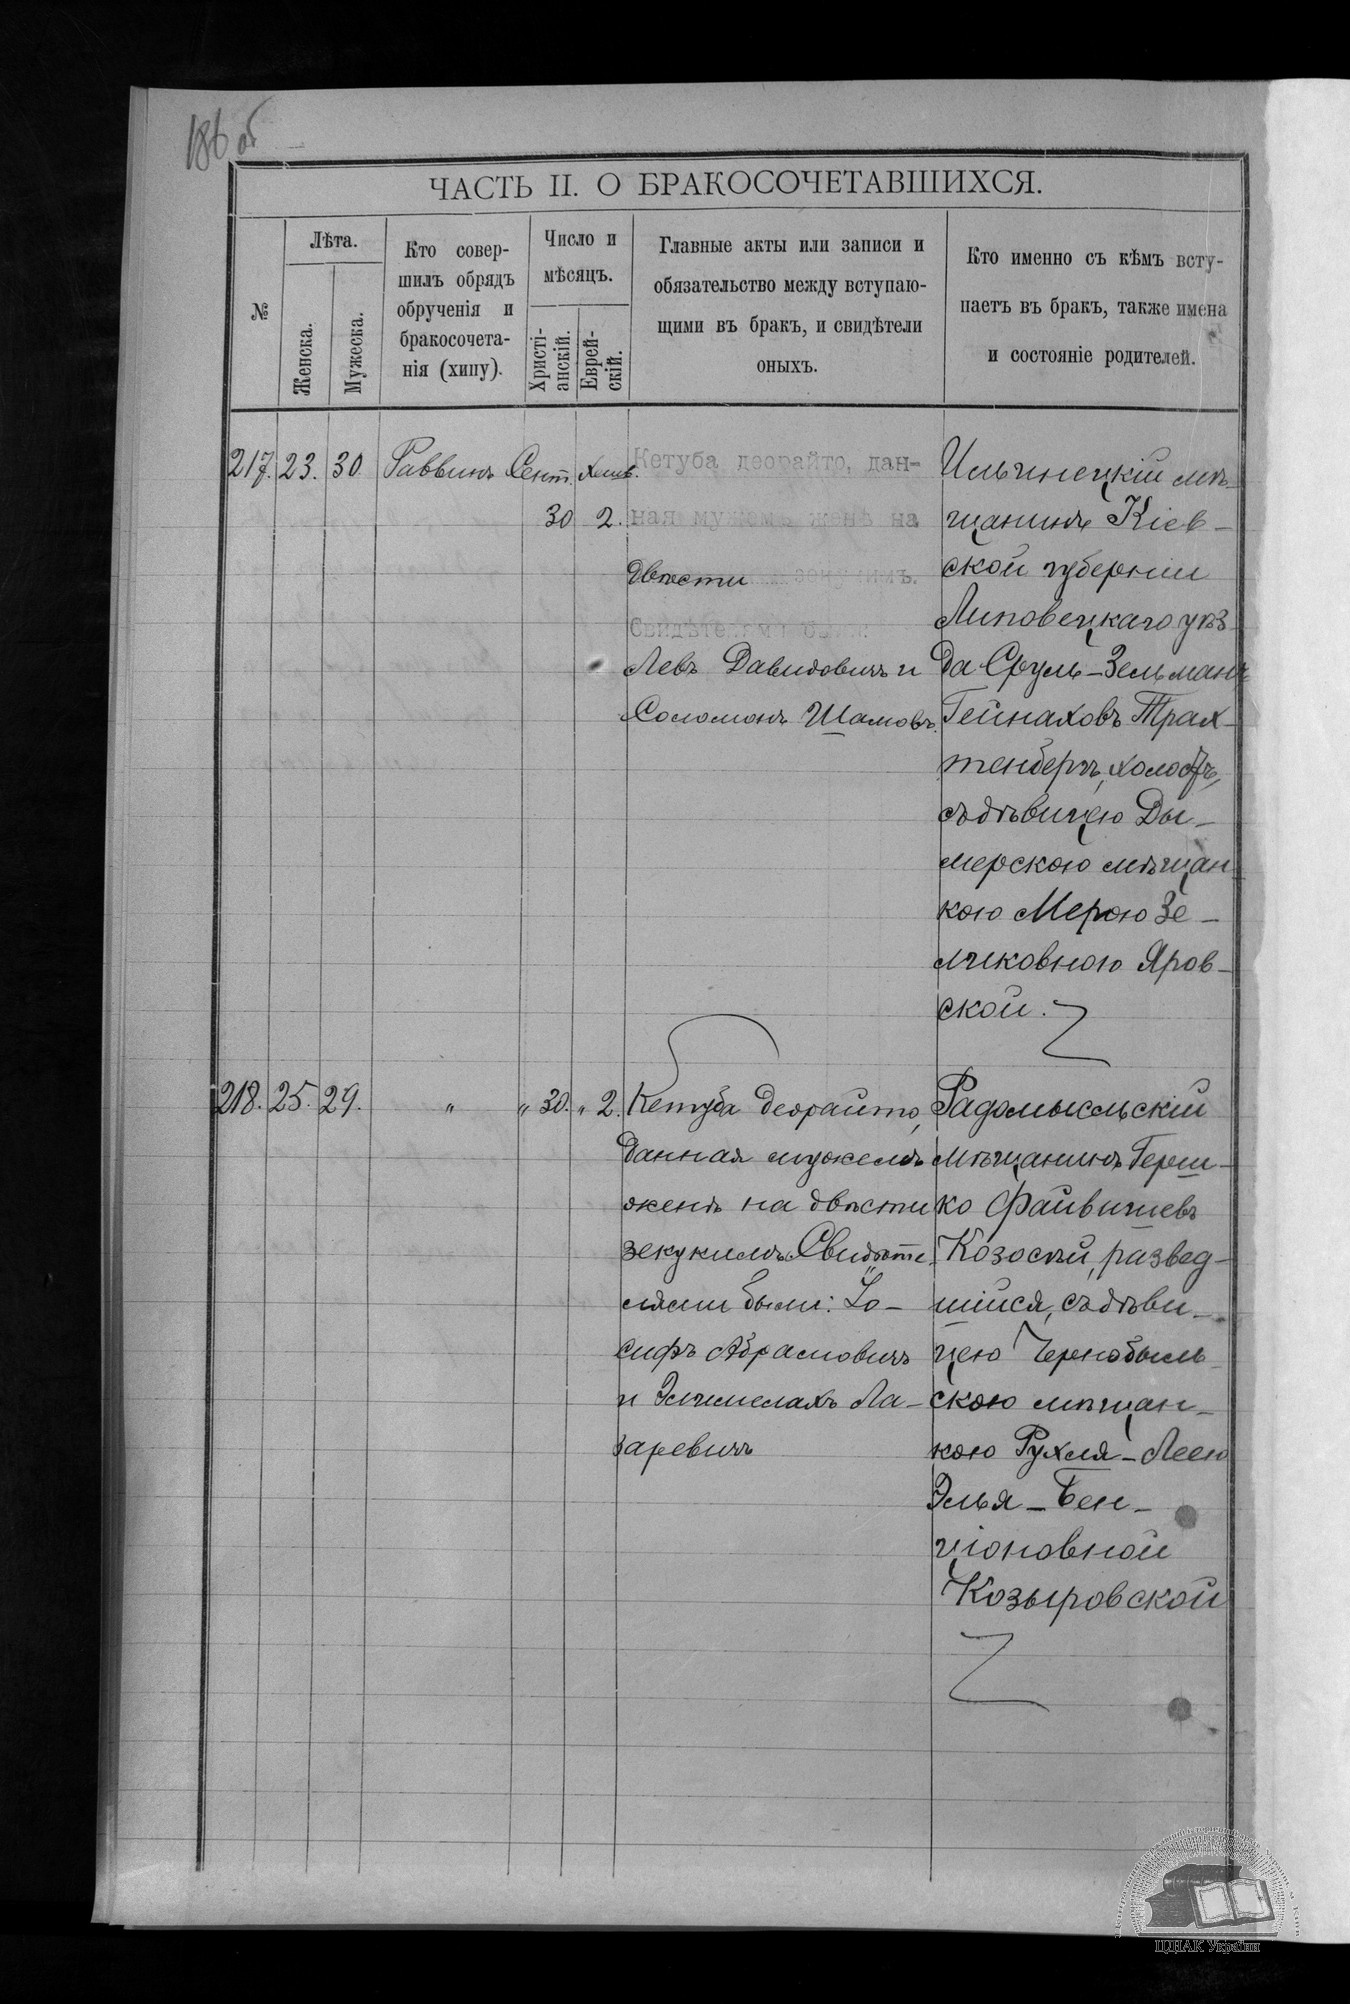 186 об
ЧАСТЬ II. О БРАКОСОЧЕТАВШИХСЯ.
№
Лѣта.
Женска.
Мужеска.
Кто совер-
шилъ обрядъ
обрученія и
бракосочета-
нія (хипу).
Число и
мѣсяцъ.
Христі-
анскій.
Еврей-
скій.
Главные акты или записи и
обязательство между вступаю-
щими въ бракъ, и свидѣтели
оныхъ.
Кто именно съ кѣмъ всту-
паетъ въ бракъ, также имена
и состояніе родителей.
217. 23. 30. Раввинъ Сент. Хешв.
30 2.
Кетуба деорайто, дан-
ная мужемъ женѣ на
двѣсти зекукимъ.
Свидѣтелями были:
Левъ Давидовичъ и
Соломонъ Шамовъ.
Ильинецкій мѣ-
щанинъ Кіев-
ской губерніи
Липовецкаго уѣз-
да Сруль-Зельманъ
Гейнаховъ Трах-
тенбергъ, холостъ,
съ дѣвицею Ды-
мерскою мѣщан-
кою Мерою Зе-
ликовною Яров-
ской.
218. 25. 29. " " 30. " 2.
Кетуба деорайто,
данная мужемъ
женѣ на двѣсти
зекукимъ. Свидѣте-
лями были: Іо-
сифъ Абрамовичъ
и Элимелахъ Ла-
заревичъ
Радомысльскій
мѣщанинъ Герш-
ко Файвишевъ
Козосѣй, развед-
шійся, съ дѣви-
цею Чернобыль-
скою мѣщан-
кою Рухля-Леею
Элья-Бен-
ціоновной
Козыровской
ЦДІАК України